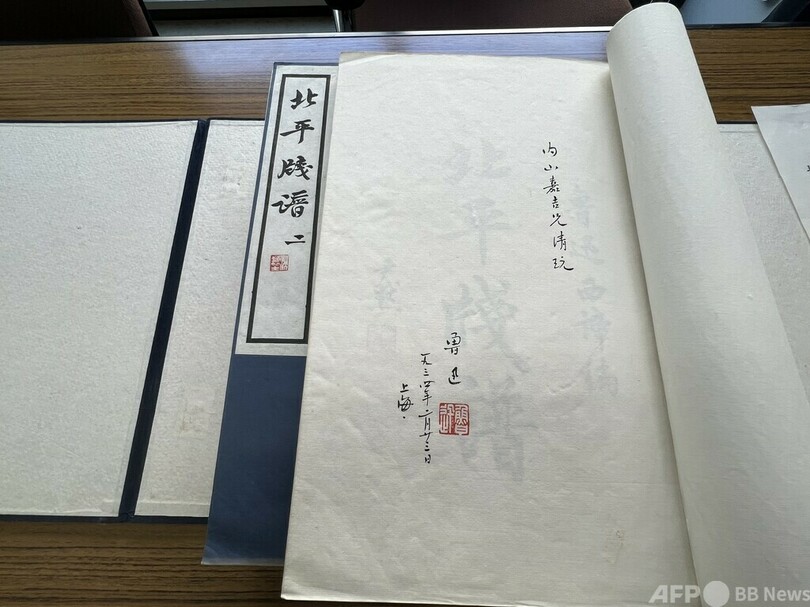 北平牋譜 二
内山嘉吉兄清玩
魯迅
一九三四年二月廿三日
上海.
AFP BB News